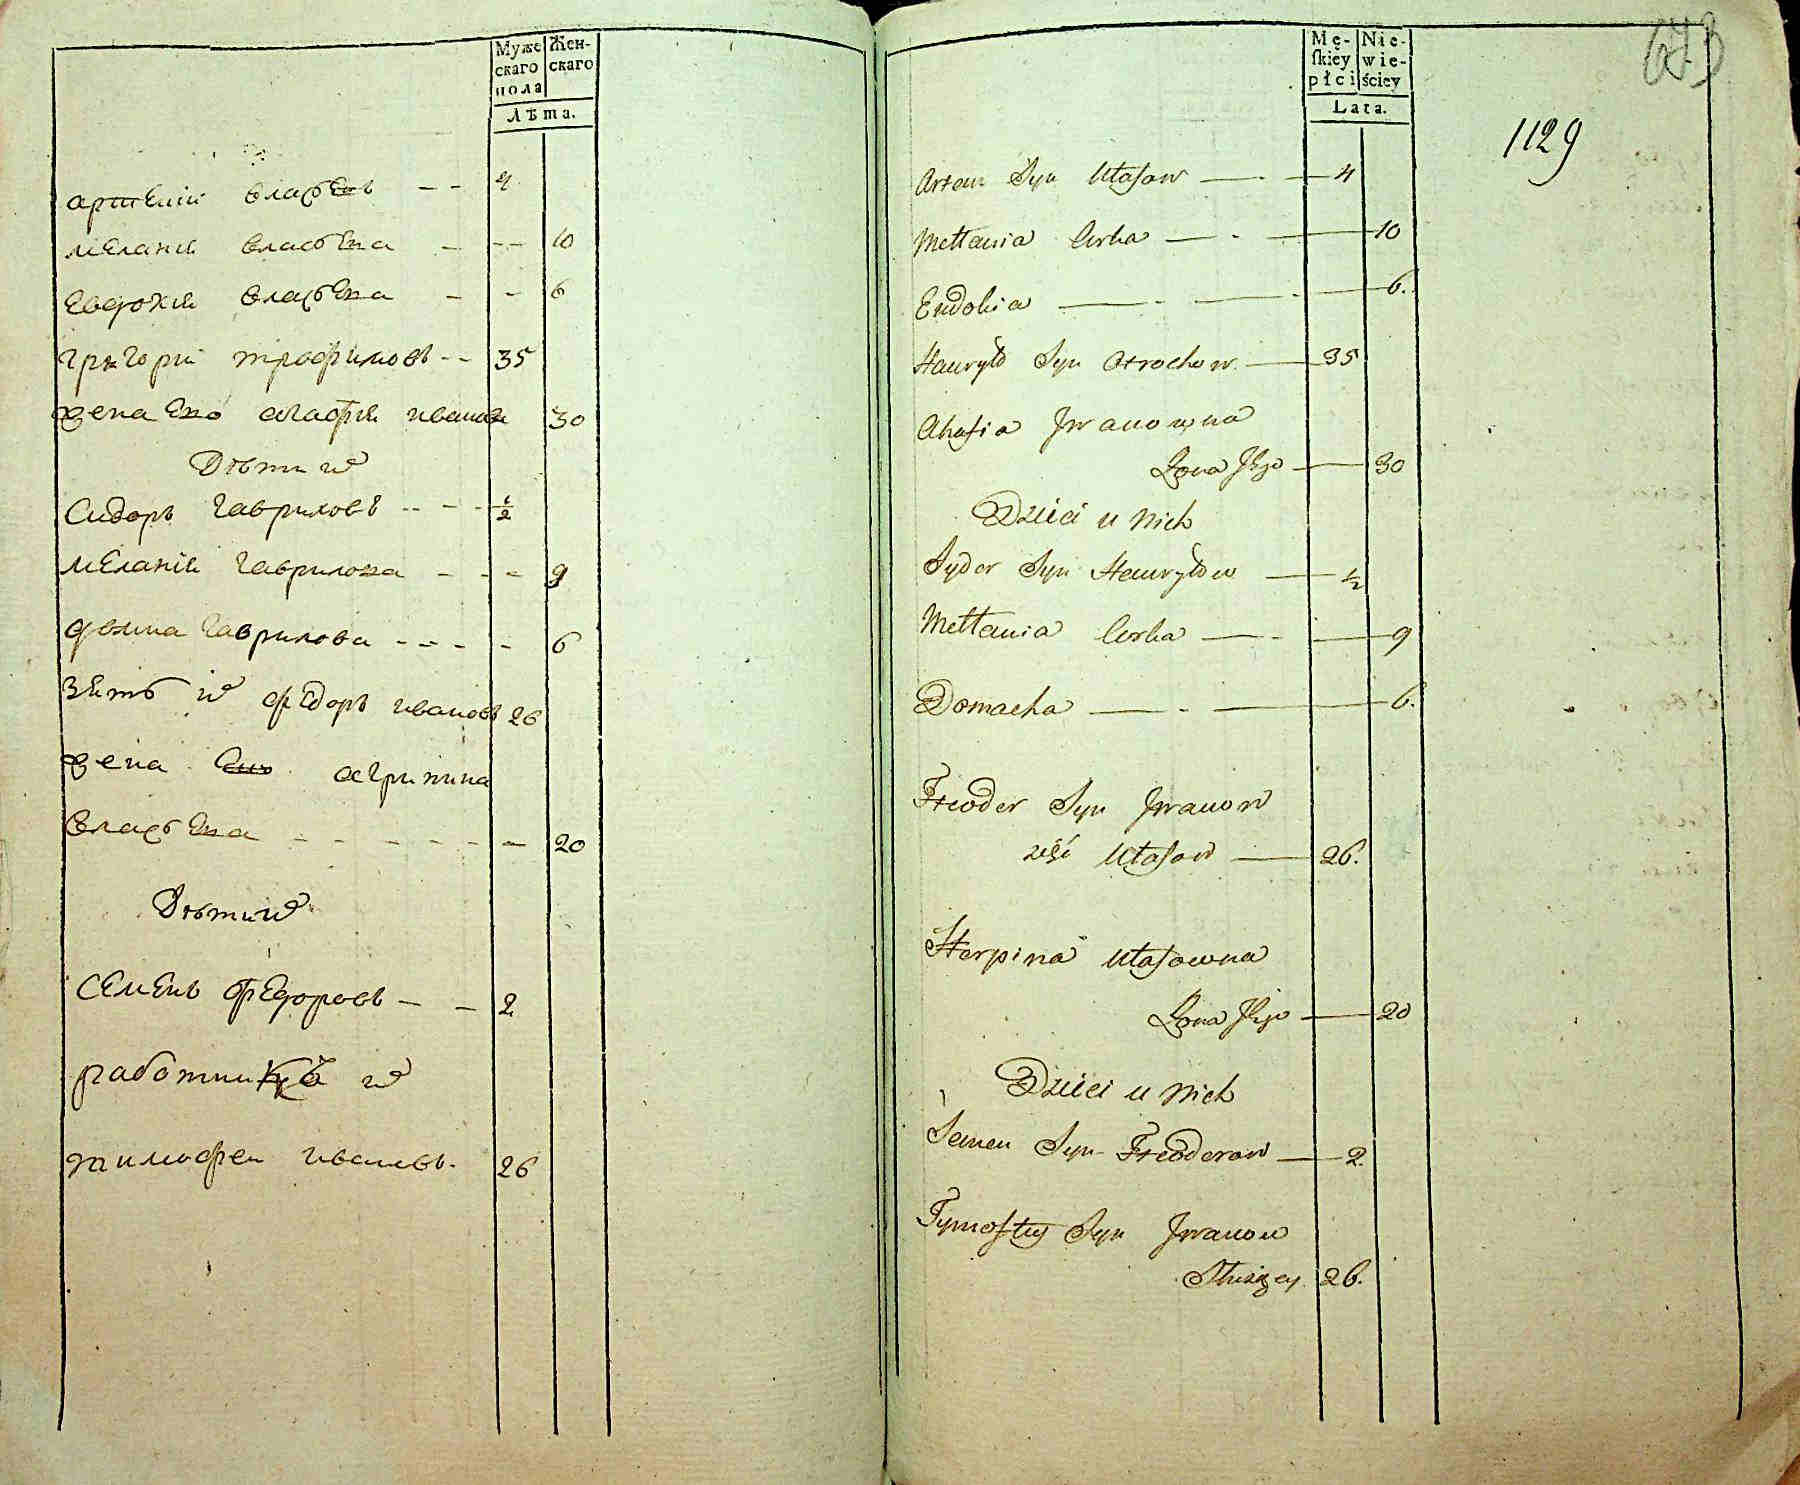 Муже
скаго
пола
Жен-
скаго
Лѣта.
артемій власовъ - - 4
меланія власова - - - 10
евдокия власова - - 6
григорій трофимовъ - - 35
жена его агафия иванова 30
Дѣти их
Сидоръ гавриловъ - - - ½
меланія гаврилова - - - 9
домна гаврилова - - - - 6
зять их федоръ ивановъ 26
жена его агрипина
власова - - - - - - 20
Дѣти их
семенъ федоровъ - - 2
работникъ их
тимофеи ивановъ. 26
Mę-
skiey
płci
Nie-
wie-
ściey
Lata.
673
1129
Artem Syn Ułasow — - — 4
Mełłania Corka — - — 10
Eudokia — - — 6.
Hauryło Syn Otrochow — 35
Ahafia Jwanowna
Zona Jego — 30
Dzieci u Nich
Sydor Syn Hauryłow — ½
Mełłania Corka — - — 9
Domacha — - — 6.
Fteoder Syn Jwanow
zięć Ułasow — 26.
Horpina Ułasowna
Zona Jego — 20
Dzieci u Nich
Semen Syn Fteoderow — 2.
Tymoftey Syn Jwanow
Służący 26.